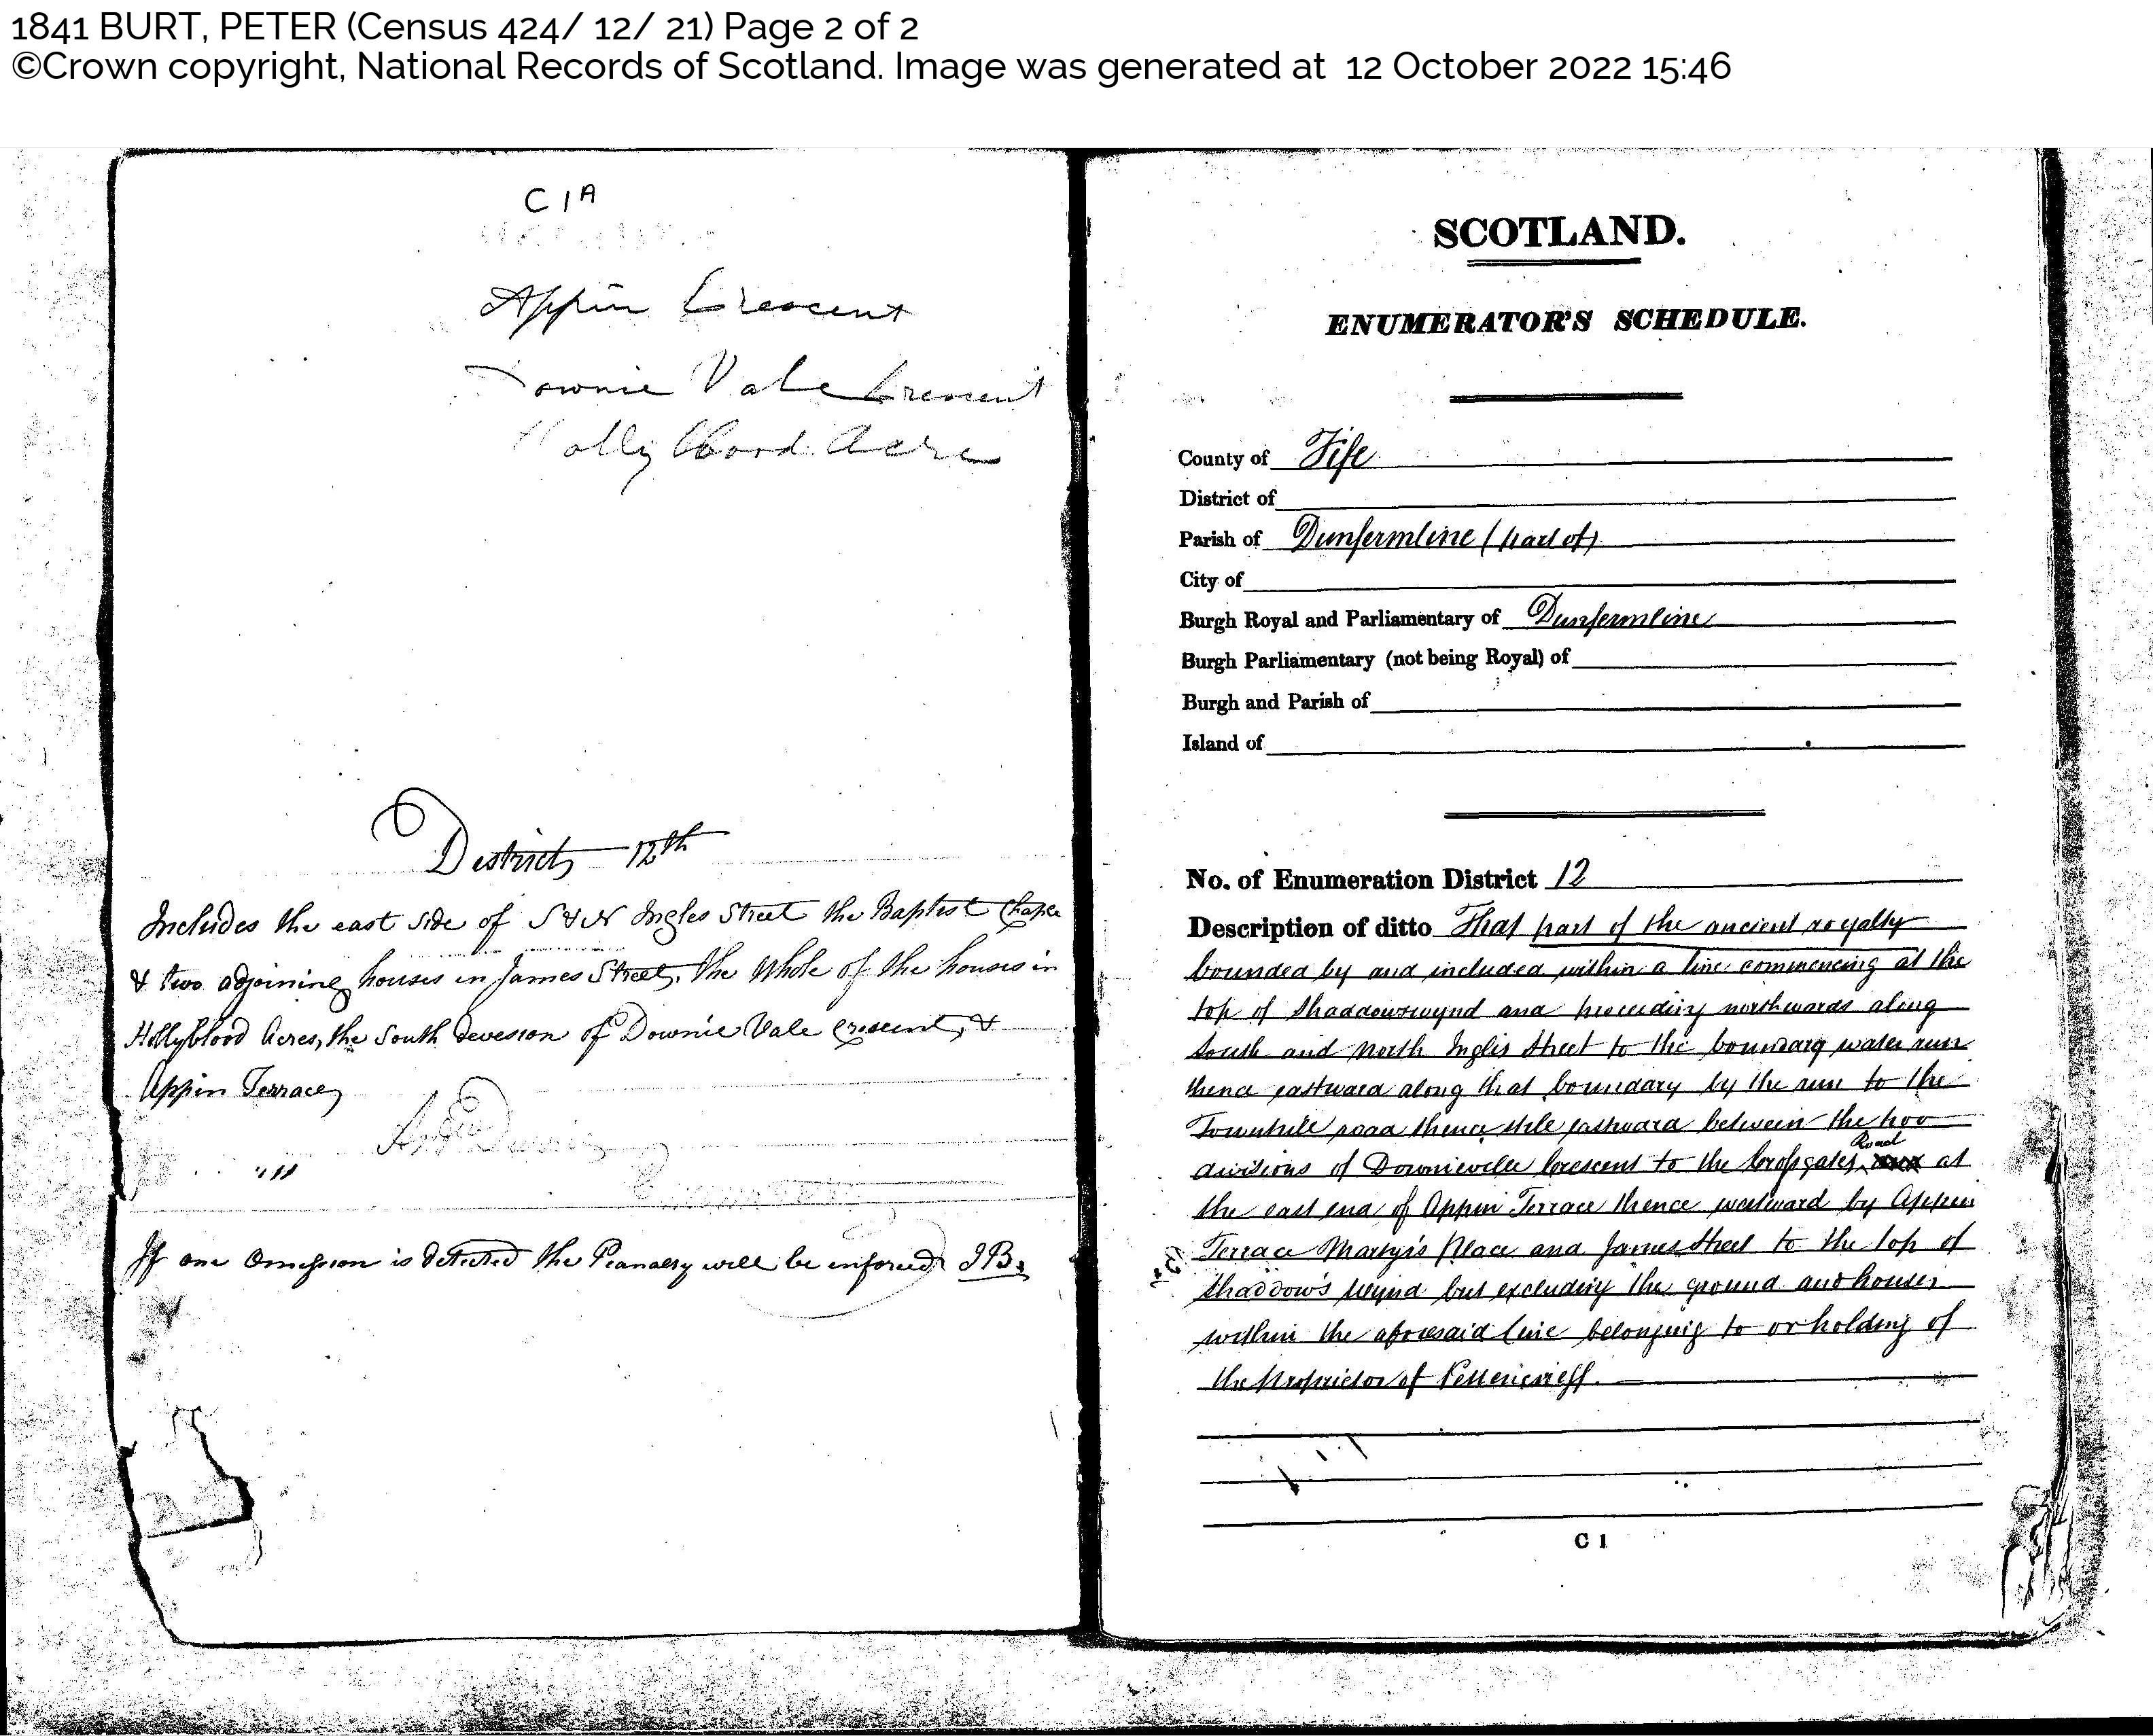 1841 BURT, PETER (Census 424/ 12/ 21) Page 2 of 2
©Crown copyright, National Records of Scotland. Image was generated at 12 October 2022 15:46
C 1A
Appin Crescent
Downie Vale Crescent
Holly Blood Acres
District 12th
Includes the east side of S & N Ingles Street the Baptist Chapel
& two adjoining houses in James Street, the Whole of the houses in
Hollyblood Acres, the South Devesion of Downie Vale Cresent, &
Appin Terrace
If one Omission is detected the Peanalty will be inforced J B.
SCOTLAND.
ENUMERATOR'S SCHEDULE.
County of Fife
District of
Parish of Dunfermline (part of)
City of
Burgh Royal and Parliamentary of Dunfermline
Burgh Parliamentary (not being Royal) of
Burgh and Parish of
Island of
No. of Enumeration District 12
Description of ditto That part of the ancient royalty
bounded by and included within a line commencing at the
top of Shaddowswynd and proceeding northwards along
South and North Inglis Street to the boundary water run
thence eastward along that boundary by the run to the
Townhill road thence still eastward between the two
divisions of Downieville Crescent to the Crossgates Road at
the east end of Appin Terrace thence westward by Appin
Terrace Martyr's Place and James Street to the top of
Shaddow's Wynd but excluding the ground and houses
within the aforesaid line belonging to or holding of
the Proprietor of Pittencrieff.
C 1